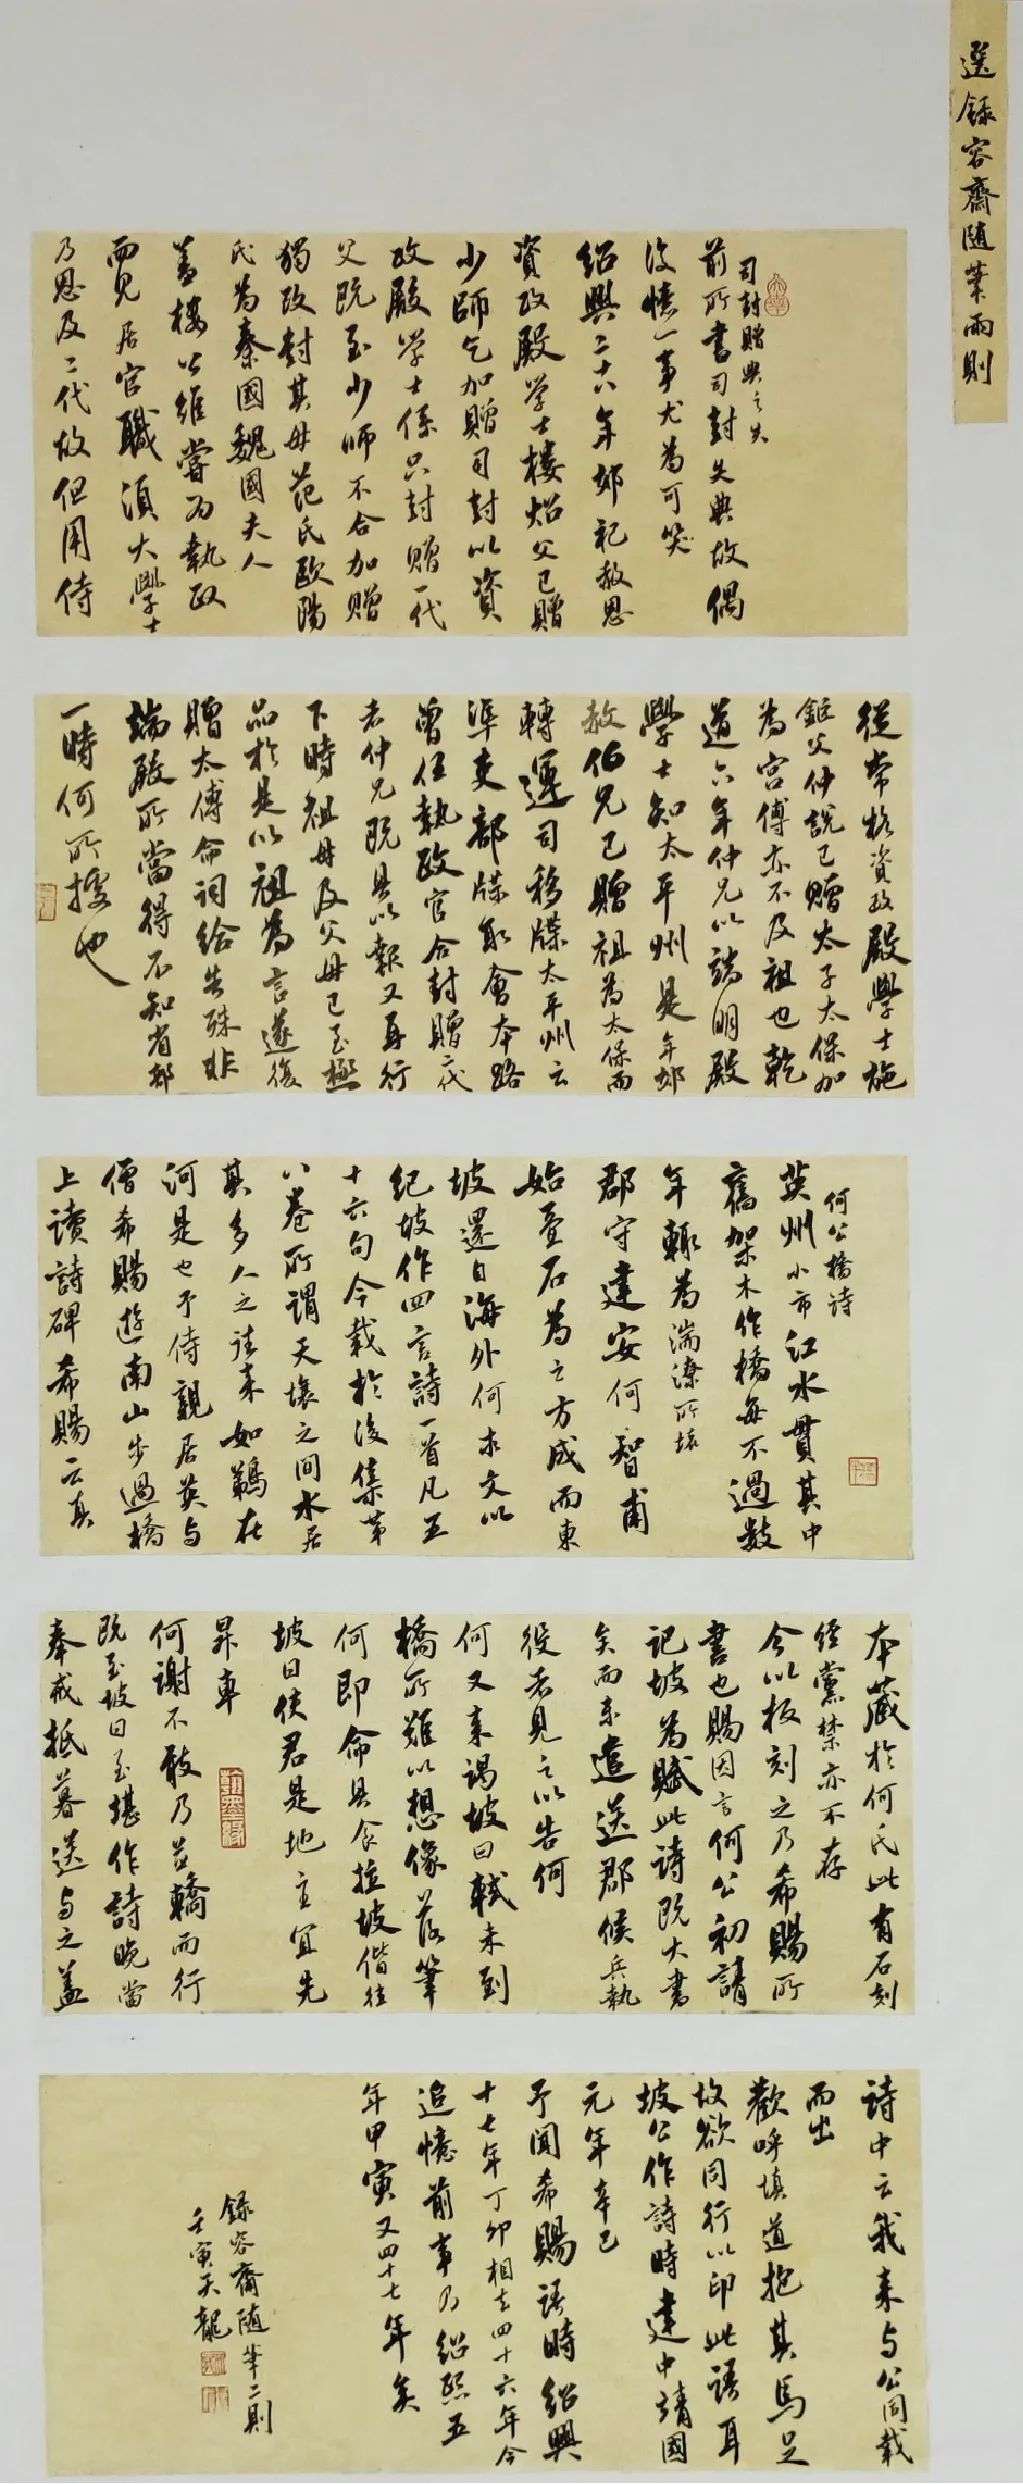 選錄容齋随筆兩則
司封贈典之失
前所書司封失典故偶
復憶一事尤為可笑
紹興二十八年郊祀赦恩
資政殿学士樓炤父已贈
少師乞加贈司封以資
政殿学士係只封贈一代
父既至少师不合加贈
獨改封其母范氏歐陽
氏為秦國魏國夫人
蓋樓公雖嘗為執政
而見居官職須大學士
乃恩及二代故但用侍
從常格資政殿學士施
鉅父仲說已贈太子太保加
為宮傅亦不及祖也乾
道六年仲兄以端明殿
學士知太平州是年郊
赦伯兄已贈祖為太保而
轉運司移牒太平州云
準吏部牒取會本路
曾任執政官合封贈二代
者仲兄既具以報又再行
下時祖母及父母已至極
品於是以祖為言遂復
贈太傅命詞給告殊非
端殿所當得不知省部
一時何所據也
何公橋詩
英州小市江水貫其中
舊架木作橋每不過數
年輒為湍潦所壞
郡守建安何智甫
始疊石為之方成而東
坡還自海外何求文以
紀坡作四言詩一首凡五
十六句今載於後集第
八卷所謂天壤之間水居
其多人之往来如鵜在
河是也予侍親居英与
僧希賜遊南山步過橋
上讀詩碑希賜云真
本藏於何氏此有石刻
經黨禁亦不存
今以板刻之乃希賜所
書也賜因言何公初請
記坡為賦此詩既大書
矣而未遣送郡候兵執
役者見之以告何
何又来謁坡曰軾未到
橋所難以想像落筆
何即命具食拉坡偕往
坡曰使君是地主宜先
昇車
何謝不敢乃並轎而行
既至坡曰至堪作詩晚當
奉戒抵暮送与之蓋
詩中云我来与公同載
而出
歡呼填道抱其馬足
故欲同行以印此語耳
坡公作詩時建中靖國
元年辛巳
予聞希賜語時紹興
十七年丁卯相去四十六年今
追憶前事乃紹熙五
年甲寅又四十七年矣
錄容齋随筆二則
壬寅天龍